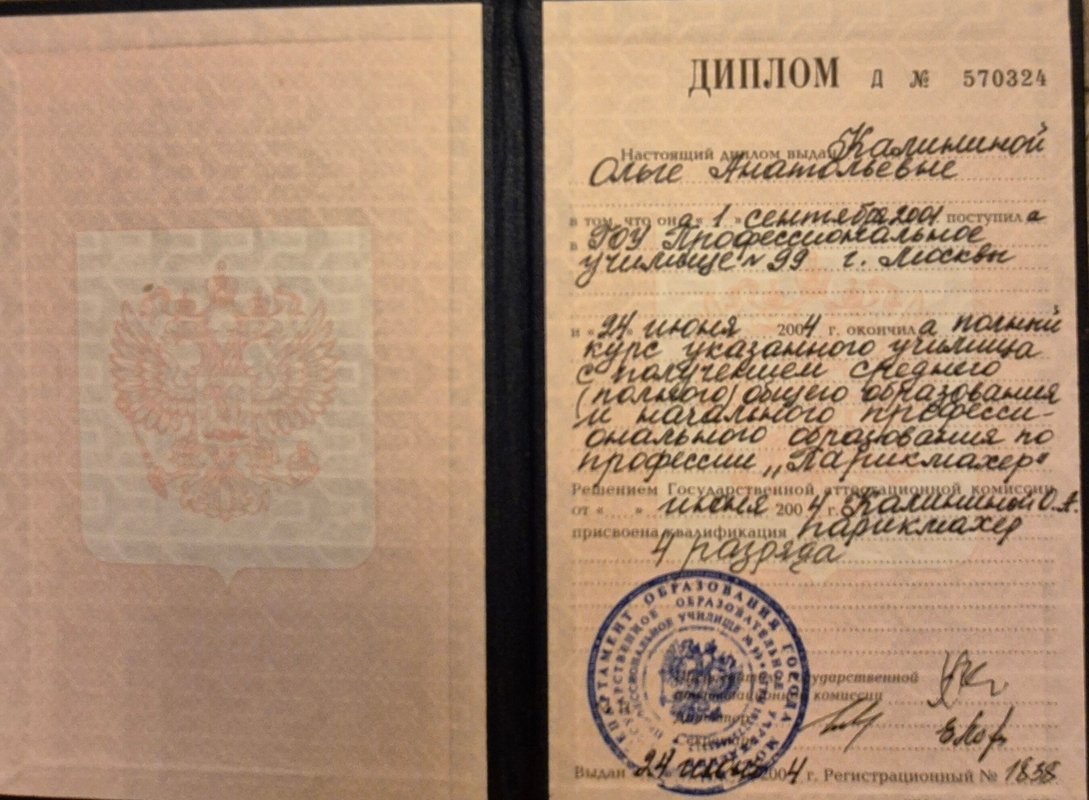 ДИПЛОМ Д № 570324
Настоящий диплом выдан Калининой
Ольге Анатольевне
в том, что она « 1 » сентября 2001 поступила
в ГОУ Профессиональное
училище № 99 г. Москвы
и « 24 » июня 2004 г. окончила полный
курс указанного училища
с получением среднего
(полного) общего образования
и начального професси-
онального образования по
профессии „Парикмахер“
Решением Государственной аттестационной комиссии
от « » июня 2004 г. Калининой О.А.
присвоена квалификация парикмахер
4 разряда
ДЕПАРТАМЕНТ ОБРАЗОВАНИЯ ГОРОДА
ГОСУДАРСТВЕННОЕ ОБРАЗОВАТЕЛЬНОЕ
ПРОФЕССИОНАЛЬНОЕ УЧИЛИЩЕ № 99
Председатель государственной
аттестационной комиссии
Директор
Секретарь
Выдан « 24 » июня 2004 г. Регистрационный № 1838